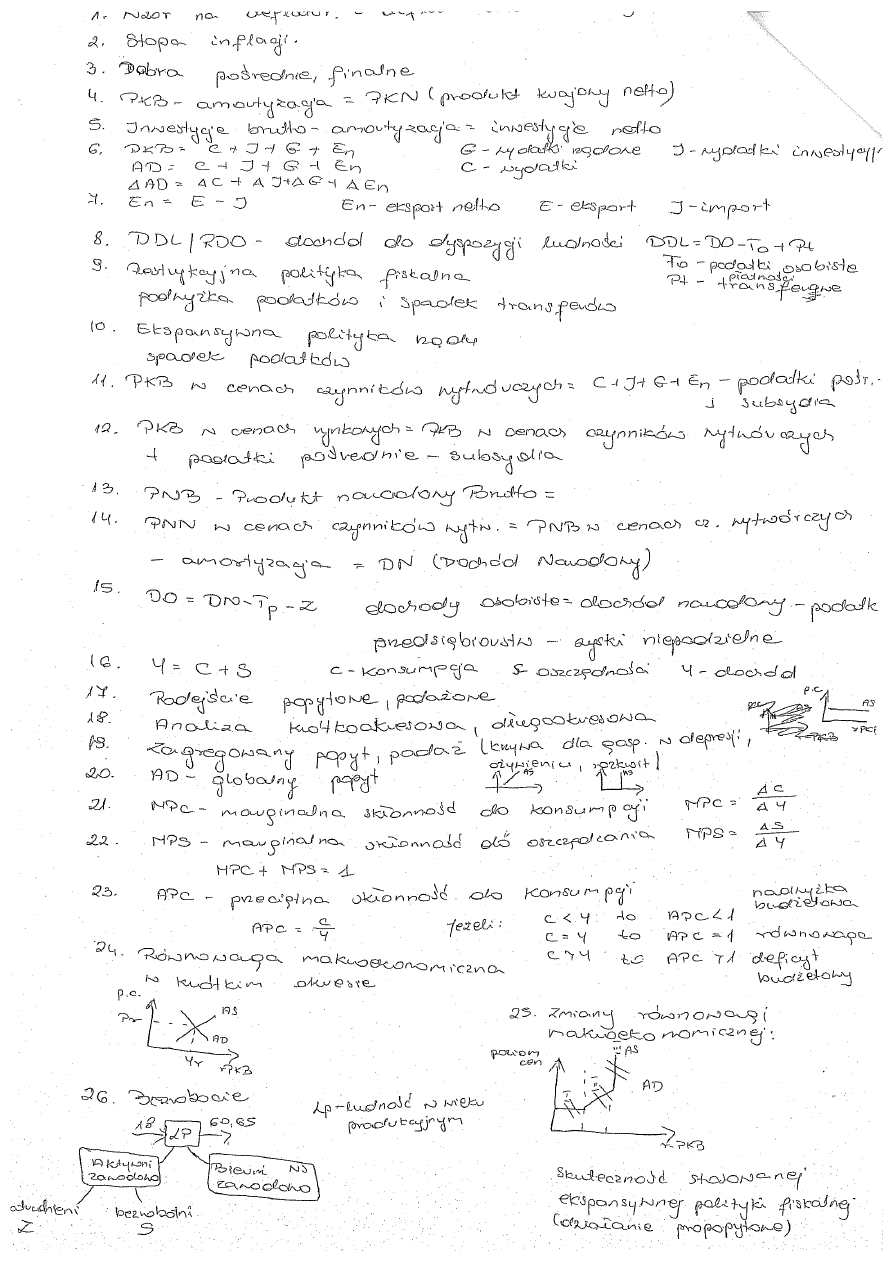 1. Wzór na deflator
2. Stopa inflacji.
3. Dobra pośrednie, finalne
4. PKB - amortyzacja = PKN (produkt krajowy netto)
5. Inwestycje brutto - amortyzacja = inwestycje netto
6. PKB = C + I + G + En G - wydatki rządowe I - wydatki inwestycyj
AD = C + I + G + En C - wydatki
ΔAD = ΔC + ΔI + ΔG + ΔEn
7. En = E - I En - eksport netto E - eksport I - import
8. DDL / RDO - dochód do dyspozycji ludności DDL = DO - To + Pt
To - podatki osobiste
Pt - płatności transferowe
9. Restrykcyjna polityka fiskalna
podwyżka podatków i spadek transferów
10. Ekspansywna polityka rządu
spadek podatków
11. PKB w cenach czynników wytwórczych = C + I + G + En - podatki pośr. -
i subsydia
12. PKB w cenach rynkowych = PKB w cenach czynników wytwórczych
+ podatki pośrednie - subsydia
13. PNB - Produkt narodowy Brutto =
14. PNN w cenach czynników wytw. = PNB w cenach cz. wytwórczych
- amortyzacja = DN (Dochód Narodowy)
15. DO = DN - Tp - Z dochody osobiste = dochód narodowy - podatk
przedsiębiorstw - zyski niepodzielne
16. Y = C + S C - konsumpcja S - oszczędności Y - dochód
17. Podejście popytowe, podażowe
p.c AS
18. Analiza krótkookresowa, długookresowa
rPKB
19. Zagregowany popyt, podaż (krzywa dla gosp. w depresji,
ożywieniu, rozkwit)
20. AD - globalny popyt AS AS
21. MPC - marginalna skłonność do konsumpcji MPC = ΔC / ΔY
22. MPS - marginalna skłonność do oszczędzania MPS = ΔS / ΔY
MPC + MPS = 1
23. APC - przeciętna skłonność do konsumpcji nadwyżka
budżetowa
APC = C / Y Jeżeli: C < Y to APC < 1
C = Y to APC = 1 równowaga
C > Y to APC > 1 deficyt
budżetowy
24. Równowaga makroekonomiczna
w krótkim okresie
p.c.
Pr AS
AD
Yr rPKB
25. Zmiany równowagi
makroekonomicznej:
poziom
cen
III AS
AD
I II
r PKB
26. Bezrobocie Lp - ludność w wieku
produkcyjnym
18 LP 60,65
Aktywni
zawodowo
Bierni
zawodowo
zatrudnieni
Z
bezrobotni
S
Skuteczność stosowanej
ekspansywnej polityki fiskalnej
(działanie propopytowe)